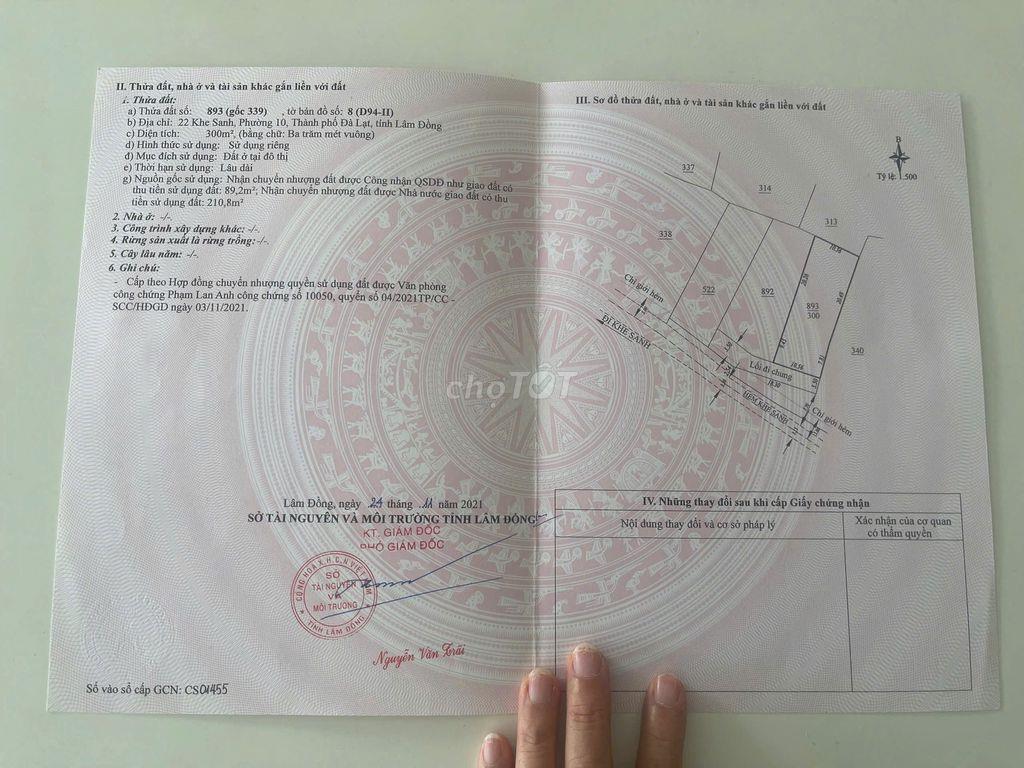 II. Thửa đất, nhà ở và tài sản khác gắn liền với đất
1. Thửa đất:
a) Thửa đất số: 893 (gốc 339) , tờ bản đồ số: 8 (D94-II)
b) Địa chỉ: 22 Khe Sanh, Phường 10, Thành phố Đà Lạt, tỉnh Lâm Đồng
c) Diện tích: 300m², (bằng chữ: Ba trăm mét vuông)
d) Hình thức sử dụng: Sử dụng riêng
đ) Mục đích sử dụng: Đất ở tại đô thị
e) Thời hạn sử dụng: Lâu dài
g) Nguồn gốc sử dụng: Nhận chuyển nhượng đất được Công nhận QSDĐ như giao đất có
thu tiền sử dụng đất: 89,2m²; Nhận chuyển nhượng đất được Nhà nước giao đất có thu
tiền sử dụng đất: 210,8m²
2. Nhà ở: -/-.
3. Công trình xây dựng khác: -/-.
4. Rừng sản xuất là rừng trồng:-/-.
5. Cây lâu năm: -/-.
6. Ghi chú:
- Cấp theo Hợp đồng chuyển nhượng quyền sử dụng đất được Văn phòng
công chứng Phạm Lan Anh công chứng số 10050, quyển số 04/2021TP/CC -
SCC/HĐGD ngày 03/11/2021.
Lâm Đồng, ngày 24 tháng 11 năm 2021
SỞ TÀI NGUYÊN VÀ MÔI TRƯỜNG TỈNH LÂM ĐỒNG
KT. GIÁM ĐỐC
PHÓ GIÁM ĐỐC
CỘNG HOÀ X.H.C.N VIỆT NAM
SỞ
TÀI NGUYÊN
VÀ
MÔI TRƯỜNG
TỈNH LÂM ĐỒNG
Nguyễn Văn Trãi
Số vào sổ cấp GCN: CS01455
III. Sơ đồ thửa đất, nhà ở và tài sản khác gắn liền với đất
B
Tỷ lệ: 1:500
337
314
313
338
522
892
893
300
340
Chỉ giới hẻm
ĐI KHE SANH
Lối đi chung
HẺM KHE SANH
Chỉ giới hẻm
10.50
18.50
7.51
1.50
choTỐT
IV. Những thay đổi sau khi cấp Giấy chứng nhận
Nội dung thay đổi và cơ sở pháp lý
Xác nhận của cơ quan
có thẩm quyền